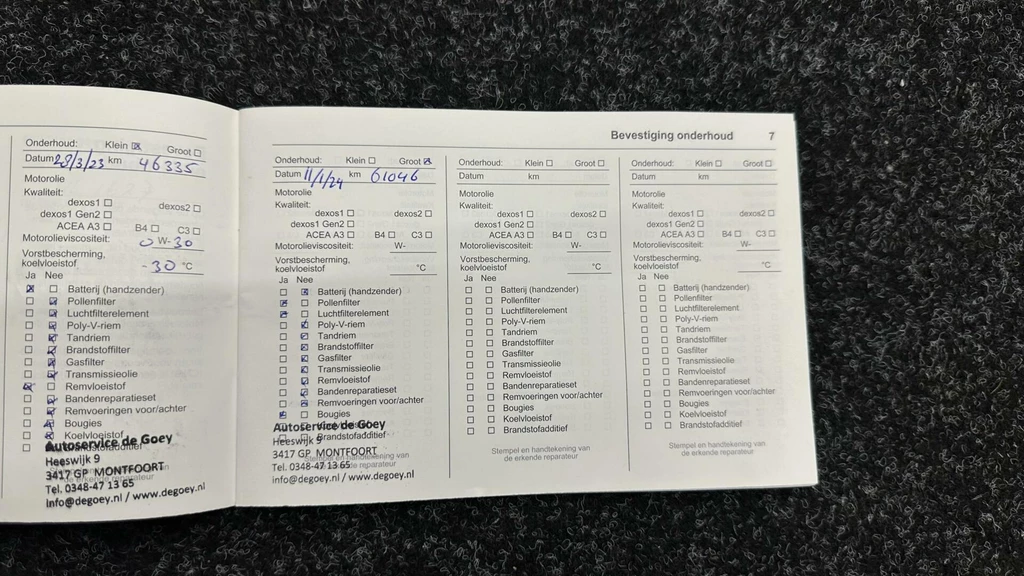 Bevestiging onderhoud 7
Onderhoud: Klein ☒ Groot ☐
Datum 28/3/23 km 46335
Motorolie
Kwaliteit:
dexos1 ☐ dexos2 ☐
dexos1 Gen2 ☐
ACEA A3 ☐ B4 ☐ C3 ☐
Motorolieviscositeit: 0 W-30
Vorstbescherming,
koelvloeistof -30 °C
Ja Nee
☒ ☐ Batterij (handzender)
☐ ☒ Pollenfilter
☐ ☒ Luchtfilterelement
☐ ☒ Poly-V-riem
☐ ☒ Tandriem
☐ ☒ Brandstoffilter
☐ ☒ Gasfilter
☐ ☒ Transmissieolie
☒ ☐ Remvloeistof
☐ ☒ Bandenreparatieset
☐ ☒ Remvoeringen voor/achter
☐ ☒ Bougies
☐ ☒ Koelvloeistof
Autoservice de Goey
Heeswijk 9
3417 GP MONTFOORT
Tel. 0348-47 13 65
info@degoey.nl / www.degoey.nl
Onderhoud: Klein ☐ Groot ☒
Datum 11/1/24 km 61046
Motorolie
Kwaliteit:
dexos1 ☐ dexos2 ☐
dexos1 Gen2 ☐
ACEA A3 ☐ B4 ☐ C3 ☐
Motorolieviscositeit: W-
Vorstbescherming,
koelvloeistof °C
Ja Nee
☐ ☒ Batterij (handzender)
☒ ☐ Pollenfilter
☒ ☐ Luchtfilterelement
☐ ☒ Poly-V-riem
☐ ☒ Tandriem
☐ ☒ Brandstoffilter
☐ ☒ Gasfilter
☐ ☒ Transmissieolie
☐ ☒ Remvloeistof
☐ ☒ Bandenreparatieset
☐ ☒ Remvoeringen voor/achter
☒ ☐ Bougies
Autoservice de Goey
Heeswijk 9
☐ ☐ Brandstofadditief
3417 GP MONTFOORT
Tel. 0348-47 13 65
info@degoey.nl / www.degoey.nl
Onderhoud: Klein ☐ Groot ☐
Datum km
Motorolie
Kwaliteit:
dexos1 ☐ dexos2 ☐
dexos1 Gen2 ☐
ACEA A3 ☐ B4 ☐ C3 ☐
Motorolieviscositeit: W-
Vorstbescherming,
koelvloeistof °C
Ja Nee
☐ ☐ Batterij (handzender)
☐ ☐ Pollenfilter
☐ ☐ Luchtfilterelement
☐ ☐ Poly-V-riem
☐ ☐ Tandriem
☐ ☐ Brandstoffilter
☐ ☐ Gasfilter
☐ ☐ Transmissieolie
☐ ☐ Remvloeistof
☐ ☐ Bandenreparatieset
☐ ☐ Remvoeringen voor/achter
☐ ☐ Bougies
☐ ☐ Koelvloeistof
☐ ☐ Brandstofadditief
Stempel en handtekening van
de erkende reparateur
Onderhoud: Klein ☐ Groot ☐
Datum km
Motorolie
Kwaliteit:
dexos1 ☐ dexos2 ☐
dexos1 Gen2 ☐
ACEA A3 ☐ B4 ☐ C3 ☐
Motorolieviscositeit: W-
Vorstbescherming,
koelvloeistof °C
Ja Nee
☐ ☐ Batterij (handzender)
☐ ☐ Pollenfilter
☐ ☐ Luchtfilterelement
☐ ☐ Poly-V-riem
☐ ☐ Tandriem
☐ ☐ Brandstoffilter
☐ ☐ Gasfilter
☐ ☐ Transmissieolie
☐ ☐ Remvloeistof
☐ ☐ Bandenreparatieset
☐ ☐ Remvoeringen voor/achter
☐ ☐ Bougies
☐ ☐ Koelvloeistof
☐ ☐ Brandstofadditief
Stempel en handtekening van
de erkende reparateur